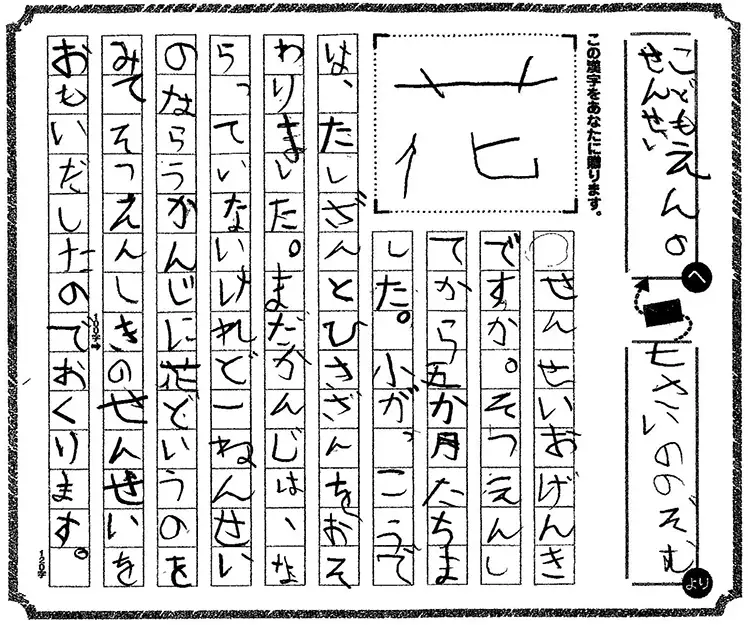 こどもえんの
せんせい
へ
七さいののぞむ
より
この漢字をあなたに贈ります。
花
せんせいおげんき
ですか。そつえんし
てから五か月たちま
した。小がっこうで
は、たしざんとひきざんをおそ
わりました。まだかんじは、な
らっていないけれど一ねんせい
のならうかんじに花というのを
みてそつえんしきのせんせいを
100字
おもいだしたのでおくります。
120字